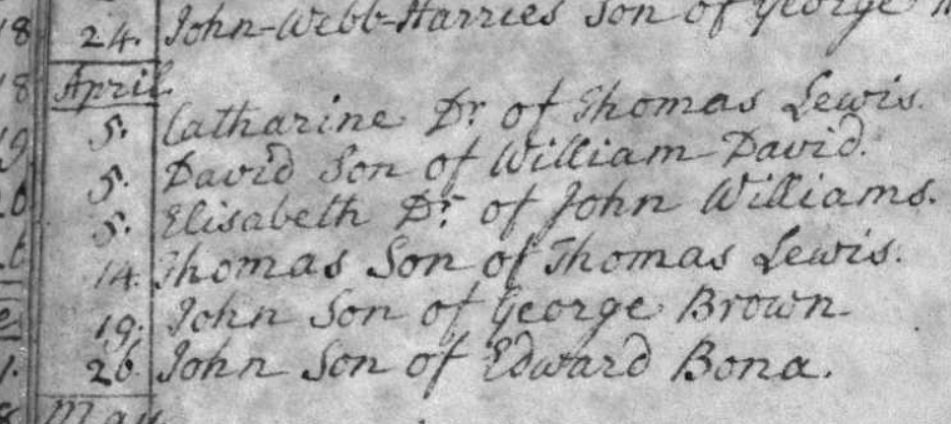 24. John-Webb-Harries Son of George
April
5. Catharine Dr. of Thomas Lewis.
5. David Son of William David.
5. Elisabeth Dr. of John Williams.
14. Thomas Son of Thomas Lewis.
19. John Son of George Brown
26. John Son of Edward Bona.
May